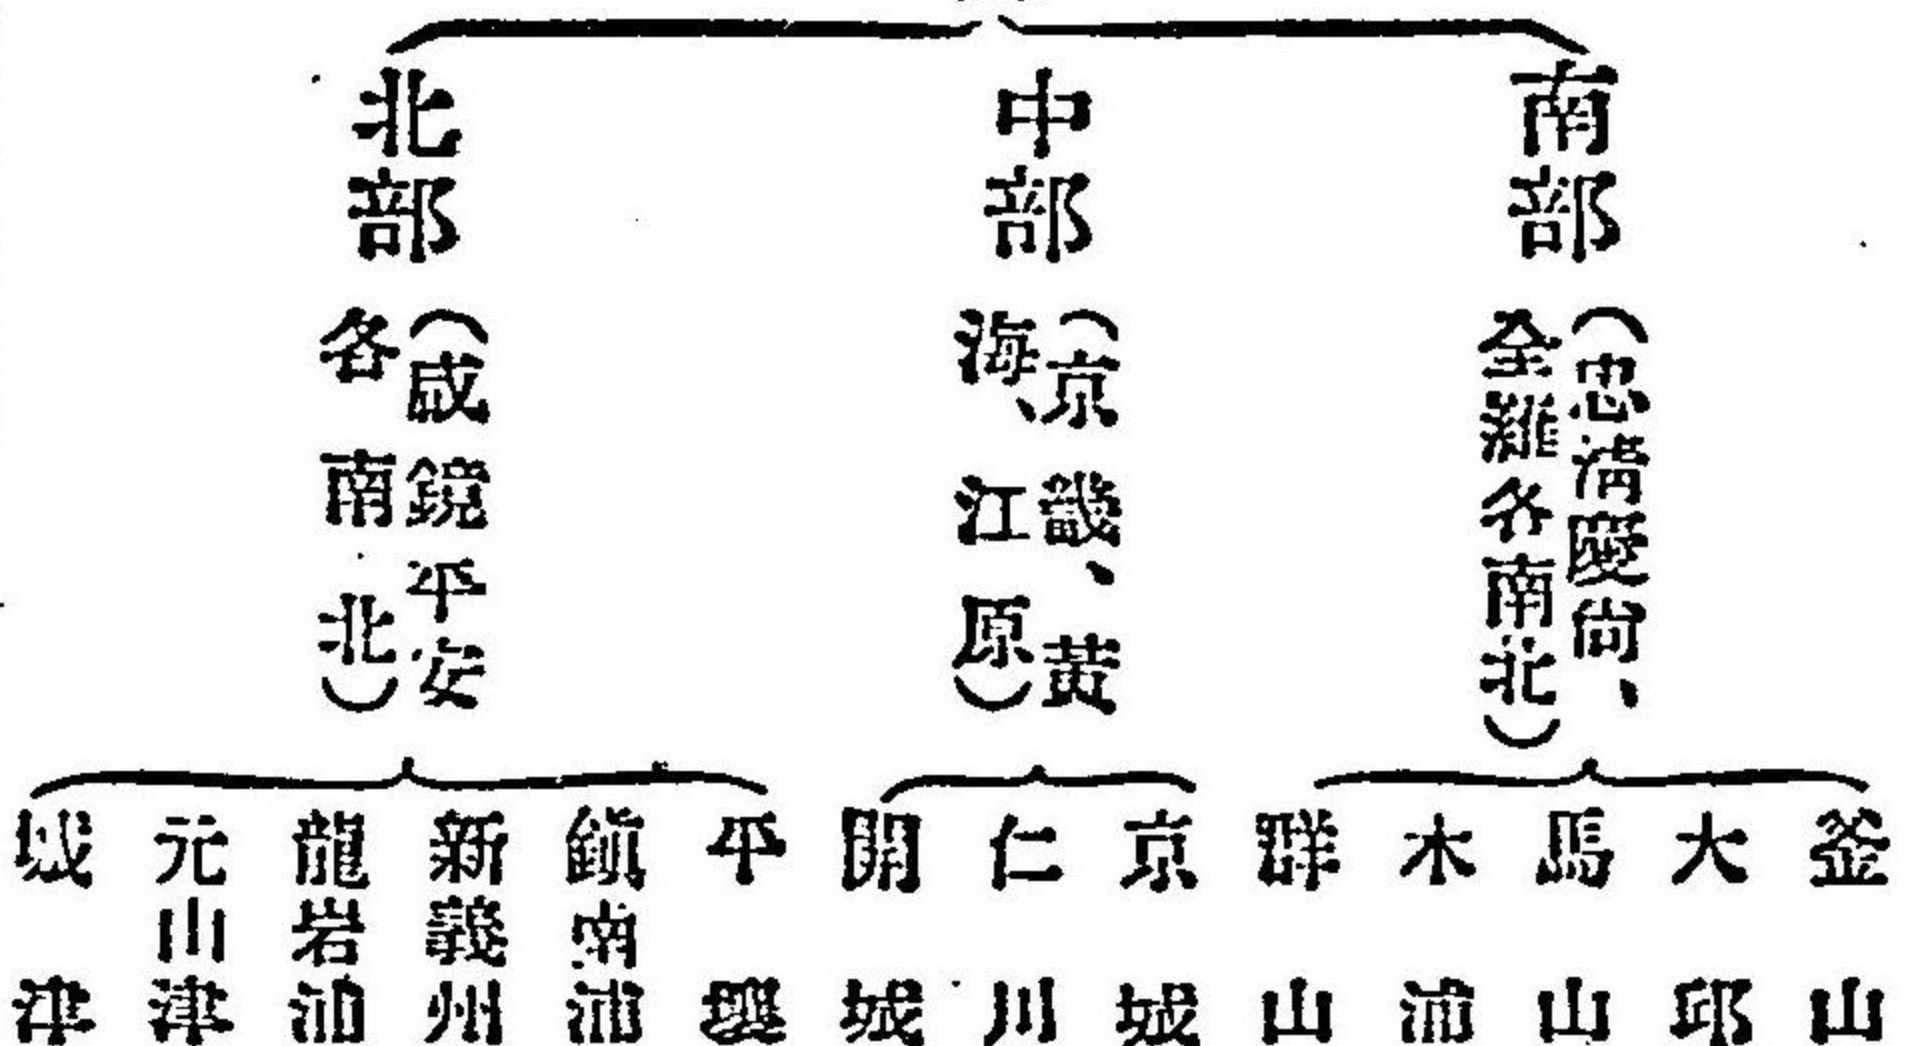 南部
（忠淸慶尙、
全羅各南北）
釜山
大邱
馬山
木浦
群山
中部
（京畿、黃
海、江原）
京城
仁川
開城
北部
（咸鏡平安
各南北）
平壤
鎭南浦
新義州
龍岩浦
元山津
城津